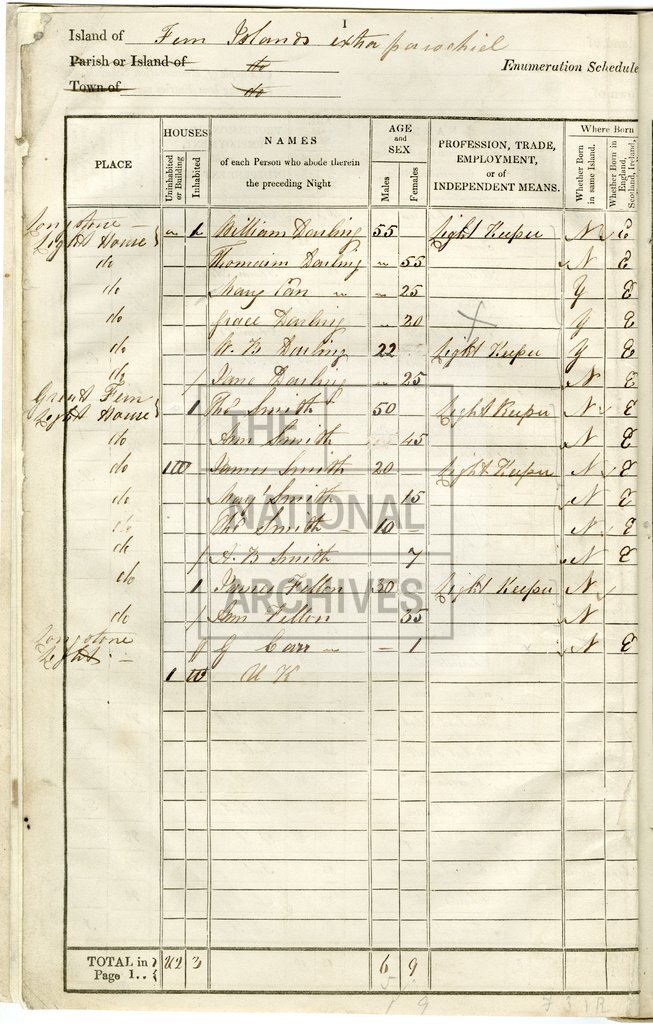 1
Island of Fern Islands extra parochial
Parish or Island of do
Enumeration Schedule
Town of do
PLACE
HOUSES
Uninhabited or Building
Inhabited
NAMES
of each Person who abode therein
the preceding Night
AGE
and
SEX
Males
Females
PROFESSION, TRADE,
EMPLOYMENT,
or of
INDEPENDENT MEANS.
Where Born
Whether Born in same Island.
Whether Born in England, Scotland, Ireland,
Longstone
Light House 1 William Darling 55 Light Keeper N E
do Thomasin Darling 55 N E
do Mary Ann 25 Y E
do Grace Darling 20 Y E
do W. B Darling 22 Light Keeper Y E
do Jane Darling 25 N E
Great Fern
Light House 1 Thos Smith 50 Light Keeper N E
do Ann Smith 45 N E
do James Smith 20 Light Keeper N E
do Smith 15 N E
do Thos Smith 10 N E
do A B Smith 7 N E
do 1 James Fellon 30 Light Keeper N
do Ann Fellon 35 N
Longstone
Light G Carr 1 N E
1 U K
TOTAL in
Page 1.. 3 6 9
THE
NATIONAL
ARCHIVES